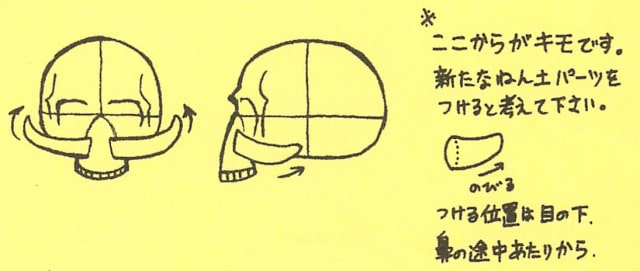 ※
ここからがキモです。
新たなねん土パーツを
つけると考えて下さい。
のびる
つける位置は目の下.
鼻の途中あたりから.